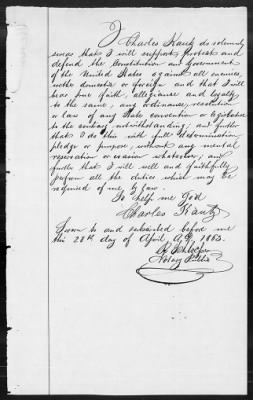 I Charles Kautz do solemnly
swear that I will support protect and
defend the Constitution and Government
of the United States against all enemies,
wether domestic or foreign and that I will
bear true faith, allegiance and loyalty
to the same, any ordinance, resolution
or law of any State convention or legislature
to the contrary notwithstanding; and further
that I do this with full determination
pledge or purpose, without any mental
reservation or evasion whatsoever; and
further that I will well and faithfully
perform all the duties which may be
required of me by law.
So help me God
Charles Kautz
Sworn to and subscribed before me
this 28th day of April A.D. 1863.
Notary Public